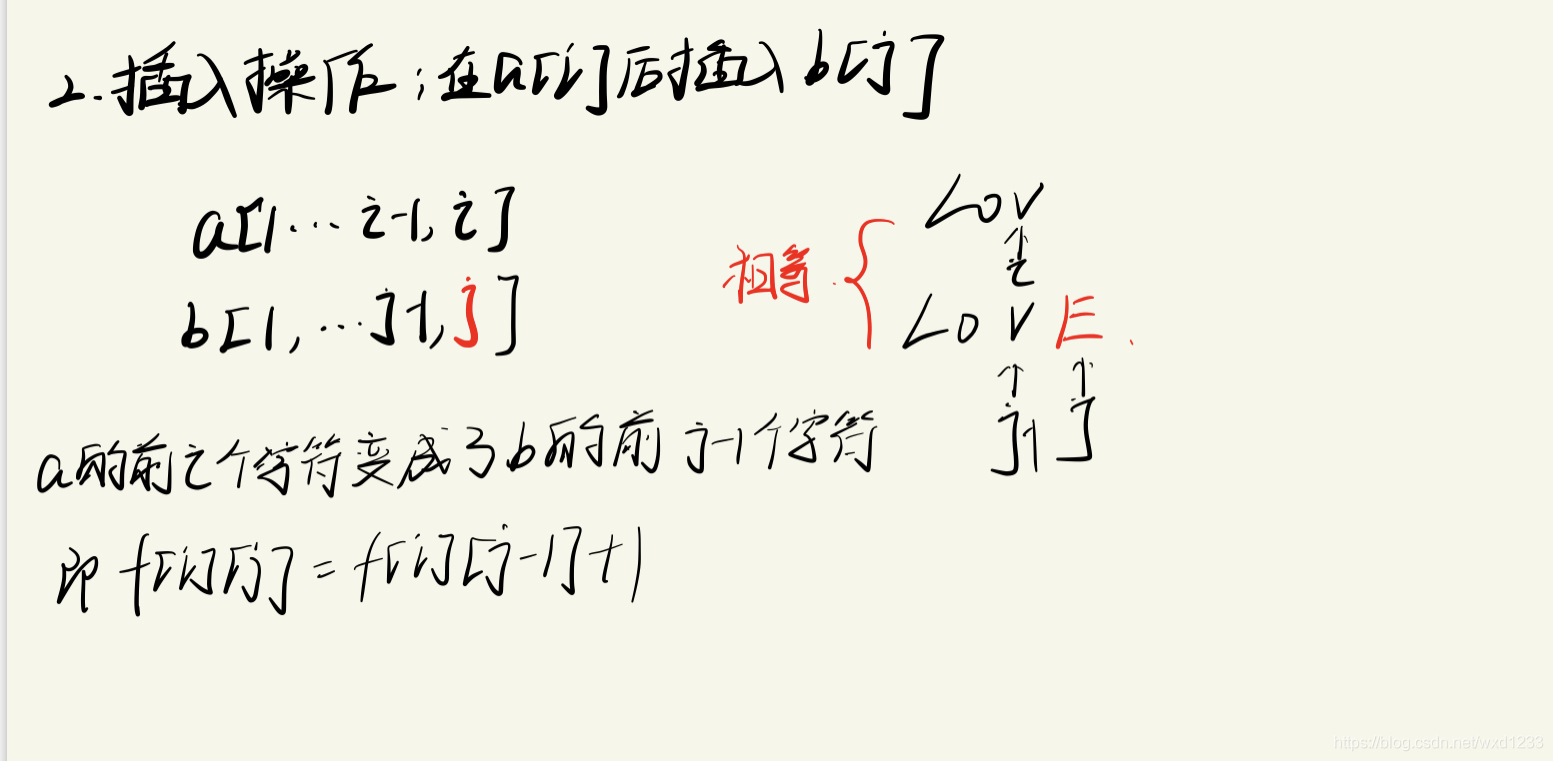 2.插入操作；在a[i]后插入b[j]
a[1...i-1,i]
b[1,...j-1,j]
相等.
LOV
↑
i
LOVE.
↑ ↑
j-1 j
a的前i个字符变成了b的前j-1个字符
即f[i][j]=f[i][j-1]+1
https://blog.csdn.net/wxd1233